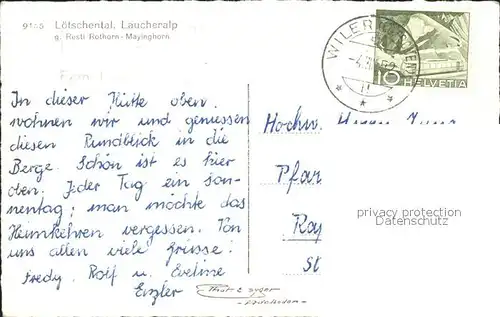 9158 Lötschental, Laucheralp
g. Restl Rothorn-Mayinghorn
WILER
HELVETIA
10
In dieser Hütte oben
wohnen wir und geniessen
diesen Rundblick in die
Berge. Schön ist es hier
oben. Jeder Tag ein son-
nentag; man möchte das
Heimkehren vergessen. Von
uns allen viele Grüsse!
Fredy, Rolf u. Eveline
Enzler
Hochw. Herrn
Pfar
privacy protection
Datenschutz
St